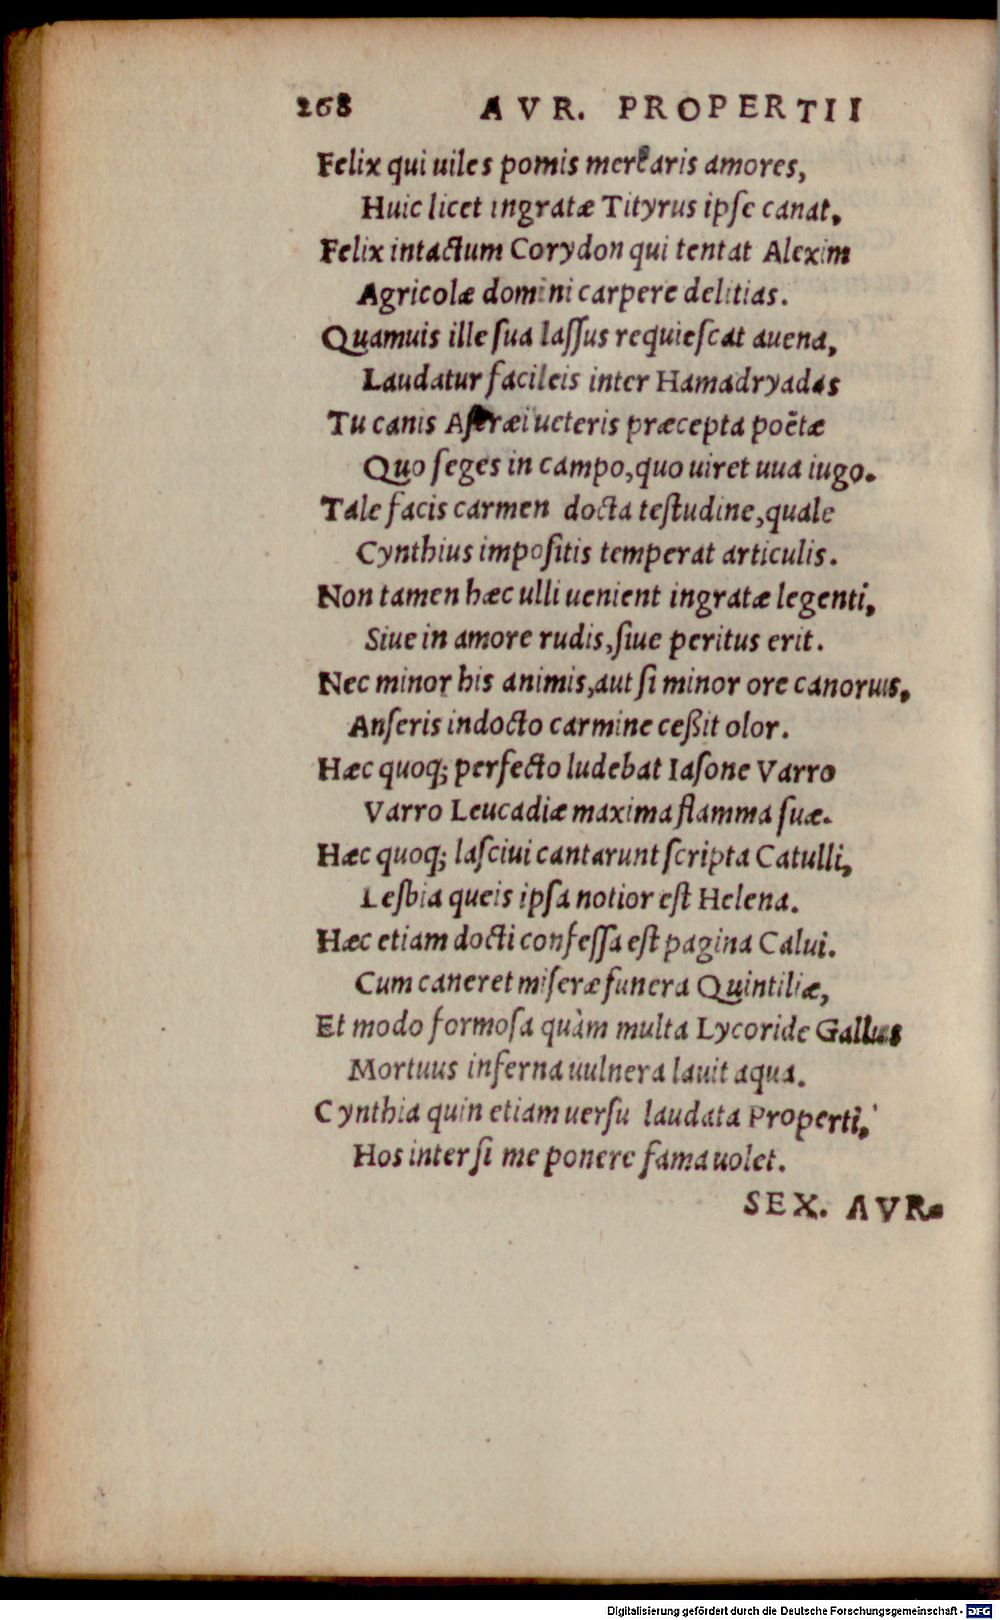 268 AVR. PROPERTII
Felix qui uiles pomis mercaris amores,
Huic licet ingratæ Tityrus ipſe canat,
Felix intactum Corydon qui tentat Alexim
Agricolæ domini carpere delitias.
Quamuis ille ſua laſſus requieſcat auena,
Laudatur facileis inter Hamadryadas
Tu canis Aſcræi ueteris præcepta poëtæ
Quo ſeges in campo, quo uiret uua iugo.
Tale facis carmen docta teſtudine, quale
Cynthius impoſitis temperat articulis.
Non tamen hæc ulli uenient ingratæ legenti,
Siue in amore rudis, ſiue peritus erit.
Nec minor his animis, aut ſi minor ore canorus,
Anſeris indocto carmine ceßit olor.
Hæc quoq; perfecto ludebat Iaſone Varro
Varro Leucadiæ maxima flamma ſuæ.
Hæc quoq; laſciui cantarunt ſcripta Catulli,
Lesbia queis ipſa notior eſt Helena.
Hæc etiam docti confeſſa eſt pagina Calui.
Cum caneret miſeræ funera Quintiliæ,
Et modo formoſa quàm multa Lycoride Gallus
Mortuus inferna uulnera lauit aqua.
Cynthia quin etiam uerſu laudata Properti,
Hos inter ſi me ponere fama uolet.
SEX. AVR-
Digitalisierung gefördert durch die Deutsche Forschungsgemeinschaft - DFG